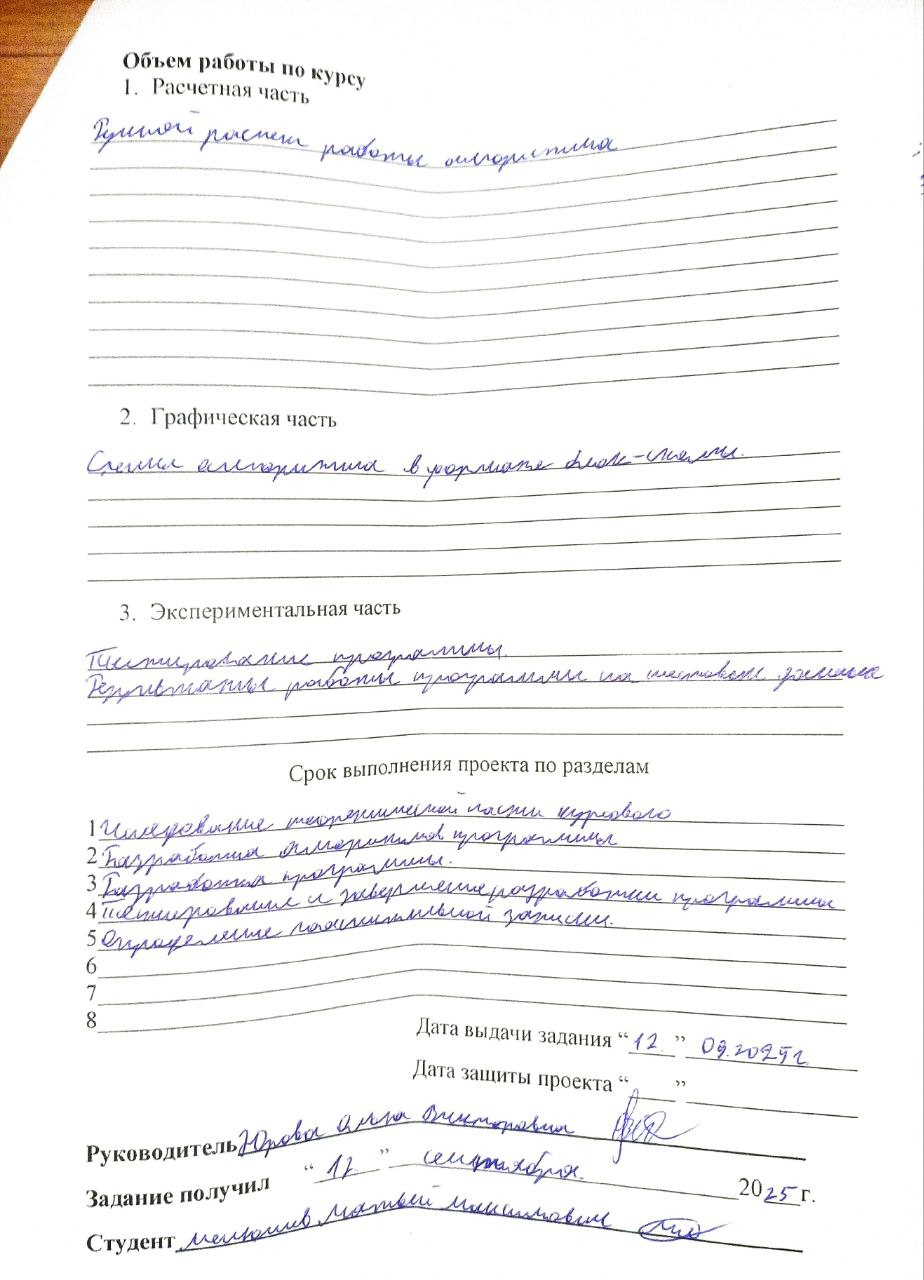 Объем работы по курсу
1. Расчетная часть
Ручной расчет работы алгоритма
2. Графическая часть
Схема алгоритма в формате блок-схемы.
3. Экспериментальная часть
Тестирование программы.
Результаты работы программы на тестовом
Срок выполнения проекта по разделам
1 теоретической части курсового
2 Разработка алгоритмов программы
3 Разработка программы.
4 Тестирование и завершение разработки программы
5 пояснительной записки.
6
7
8
Дата выдачи задания “12” 09.2025г.
Дата защиты проекта “ ”
Руководитель Юрова Викторовна
Задание получил “12” сентября 2025 г.
Студент Матвей Максимович